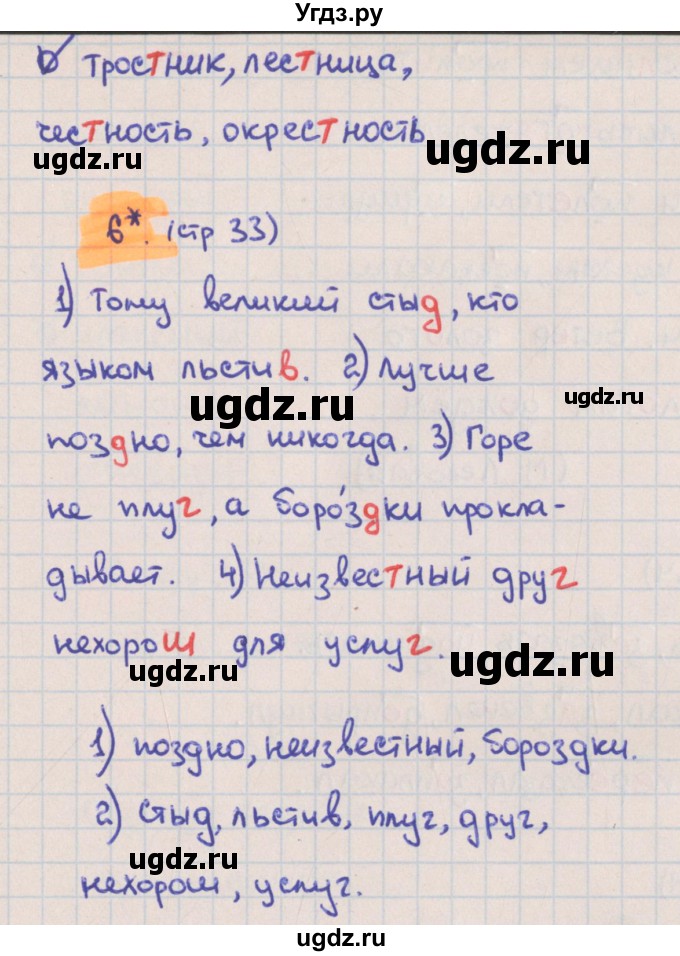 Угдз.ру
тростник, лестница,
честность, окрестность
ugdz.ru
ugdz.ru
6*. (стр 33)
1) Тому великий стыд, кто
языком льстив. 2) Лучше
ugdz.ru
ugdz.ru
поздно, чем никогда. 3) Горе
не плуг, а боро́здки прокла-
дывает. 4) Неизвестный друг
нехорош для услуг.
ugdz.ru
ugdz.ru
1) поздно, неизвестный, бороздки.
2) стыд, льстив, плуг, друг,
ugdz.ru
нехорош, услуг.
ugdz.ru